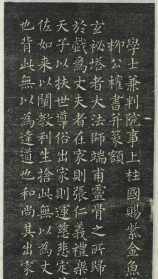 學士兼判院事上柱國賜紫金魚
柳公權書并篆額
玄秘塔者大法師端甫靈骨之所歸
於戲為丈夫者在家則張仁義禮樂
天子以扶世導俗出家則運慈悲定
佐如來以闡教利生捨此無以為丈
也背此無以為達道也和尚其出家